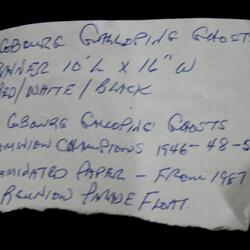 COBOURG GALLOPING GHOSTS
BANNER 10'L X 16" W
RED/WHITE/BLACK
COBOURG GALLOPING GHOSTS
DOMINION CHAMPIONS 1946-48-5
LAMINATED PAPER - FROM 1987
REUNION PARADE FLOAT.